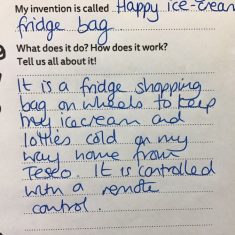 My invention is called Happy ice-cream
fridge bag
What does it do? How does it work?
Tell us all about it!
It is a fridge shopping
bag on wheels to keep
my icecream and
lollies cold on my
way home from
Tesco. It is controlled
with a remote
control.